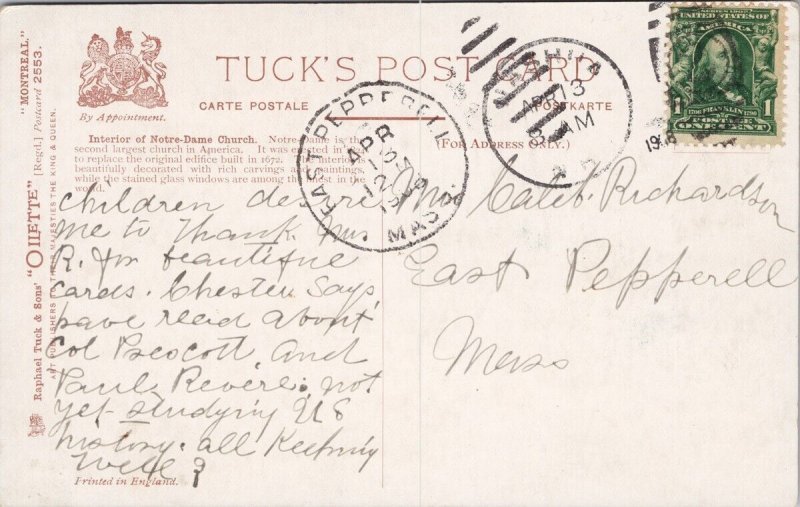 "MONTREAL."
[Regd.] Postcard 2553.
Raphael Tuck & Sons' "OILETTE"
ART PUBLISHERS TO THEIR MAJESTIES THE KING & QUEEN.
By Appointment.
TUCK'S POST CARD
CARTE POSTALE
POSTKARTE
(FOR ADDRESS ONLY.)
Interior of Notre-Dame Church. Notre-Dame is the
second largest church in America. It was erected in
to replace the original edifice built in 1672. The interior
beautifully decorated with rich carvings and paintings,
while the stained glass windows are among the finest in the
world.
EAST PEPPERELL
APR
MASS
APR 13
AM
SERIES 1902
UNITED STATES OF
AMERICA
FRANKLIN
1 POSTAGE 1
ONE CENT
children desire
me to thank Mrs
R. for beautiful
cards. Chester says,
have read about
Col Prescott, and
Paul Revere; not
yet studying U S
history. all keeping
well?
Caleb Richardson
East Pepperell
Mass
Printed in England.